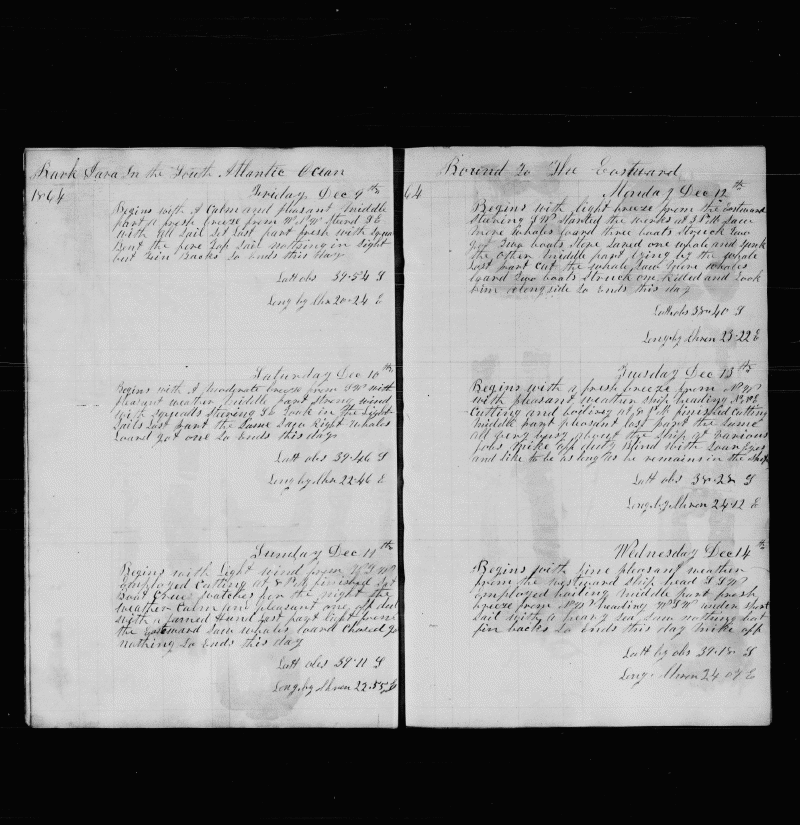 Bark Java In the South Atlantic Ocean
1864
Friday Dec 9th
Begins with A Calm and pleasant Middle
part a fresh breeze from W.S.W. Sterd S E
with all Sail Set Last part fresh with Squals
the fore Top Sail nothing in Sight
but Finn Backs So Ends this day
Latt obs 39-54 S
Long by Chr 20-24 E
Saturday Dec 10th
Begins with A Moderate breeze from S W with
pleasant weather Middle part Strong wind
with Squalls Stering S E Took in the Light
Sails Last part the Same Saw Right Whales
Loard got one So Ends this day
Latt obs 39-46 S
Long by Chr 22-46 E
Sunday Dec 11th
Begins with Light wind from W S W
Employed Cutting at 8 P M finished Set
Boat Crew watches for the night the
weather Calm and pleasant one of duty
with a Jamed Hand Last part Light from
the Eastward Saw whales Loard Chased got
nothing So Ends this day
Latt obs 39-11 S
Long by Chron 22-55 E
Bound To The Eastward
64
Monday Dec 12th
Begins with light breeze from the Eastward
Stering Started the works at 3 P M Saw
more whales Loard three boats Struck Two
got Two boats Stove Saved one whale and Sunk
the other Middle part lying by the whale
Last part Cut the whale Saw more whales
Loard Two boats Struck one Killed and Took
him along side So Ends this day
Latt obs 38-40 S
Long by Chron 23-22 E
Tuesday Dec 13th
Begins with a fresh breeze from N W
with pleasant weather Ship heading
Cutting and boiling at 8 P M finished Cutting
Middle part pleasant last part the Same
all gang busy about the Ship at various
Jobs Mike off duty blind with Soar Eyes
and like to be as long as he remains in the Ship
Latt obs 38-28 S
Long by Chron 24-12 E
Wednesday Dec 14th
Begins with fine pleasant weather
from the westward Ship head S S W
Employed boiling Middle part fresh
breeze from N W heading W S W under Short
Sail with a heavy Sea Saw nothing but
fin backs So Ends this day Mike off
Latt by obs 39-18 S
Long Chron 24 07 E